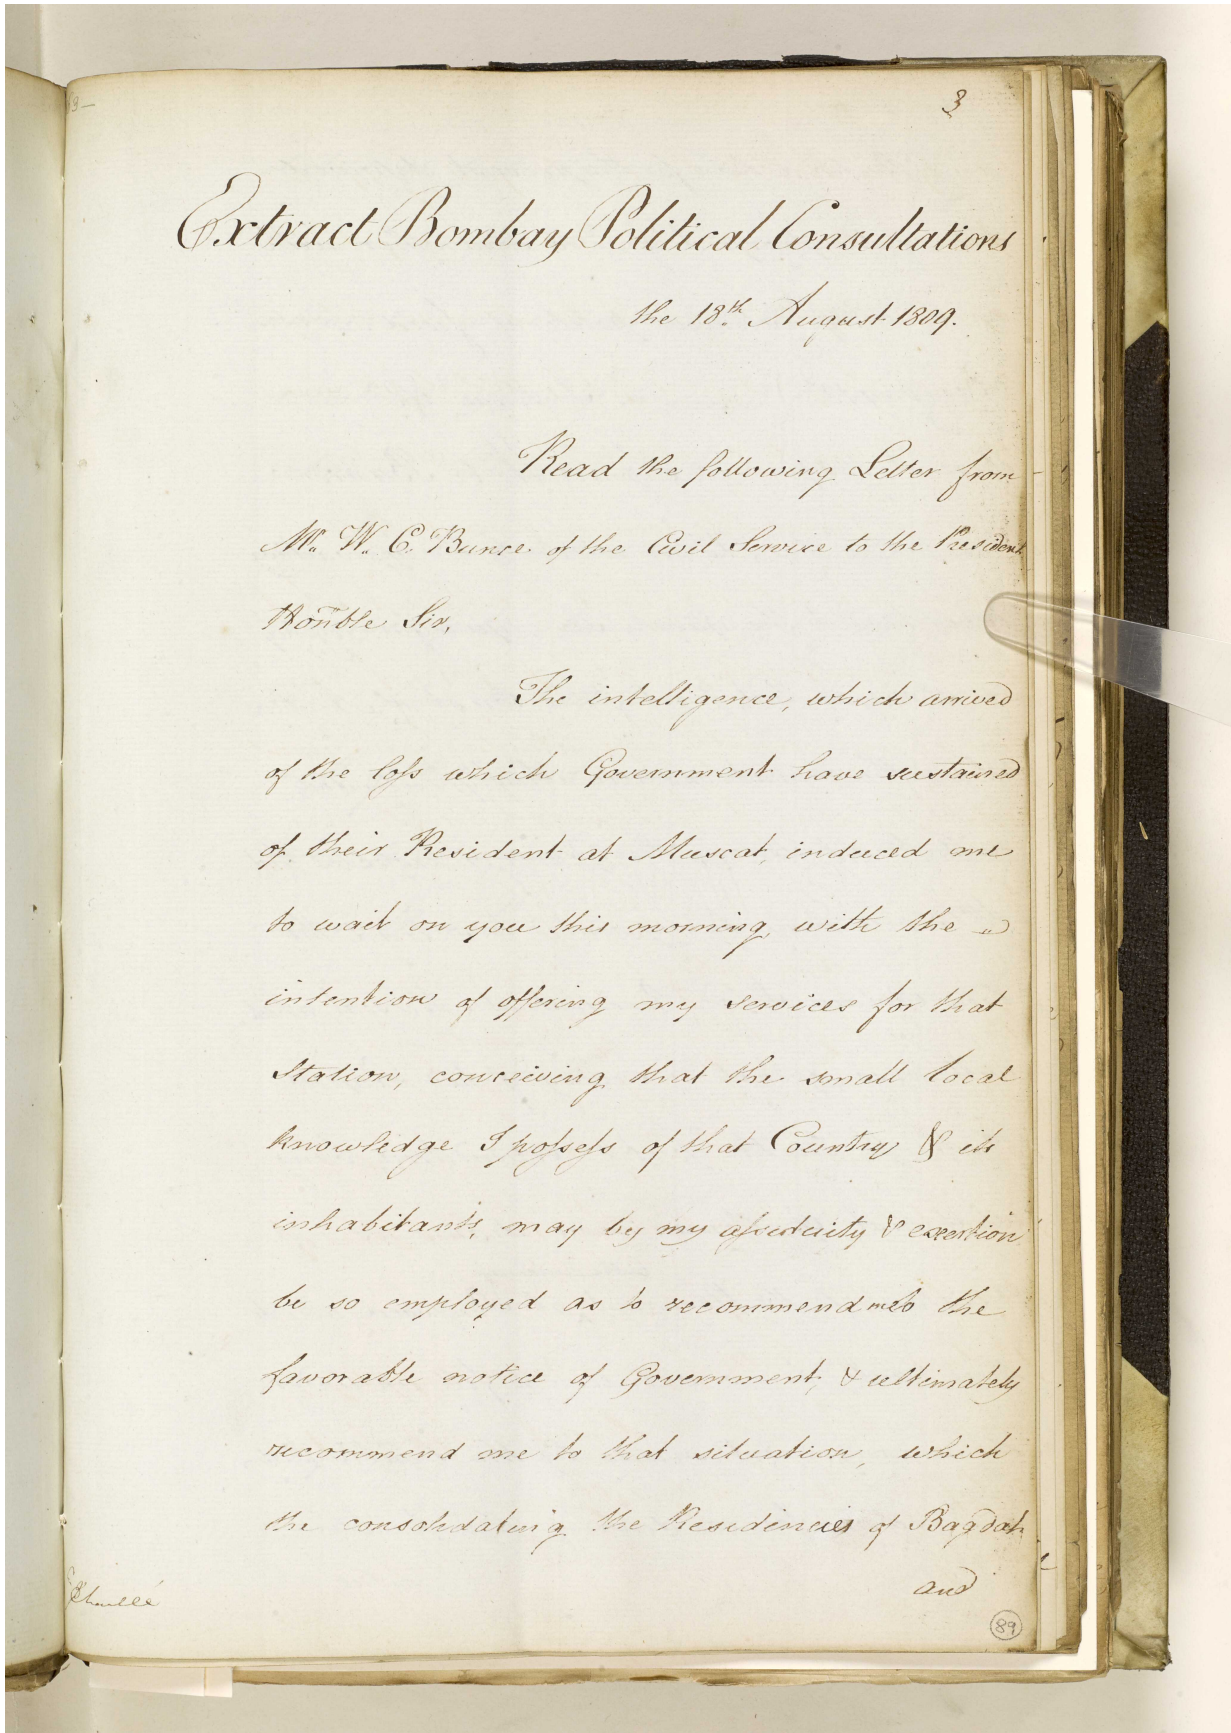 3
Extract Bombay Political Consultations
the 18th. August 1809.
Read the following Letter from
Mr. W. C. Bunce of the Civil Service to the President
Honble Sir,
The intelligence, which arrived
of the loſs which Government have sustained
of their Resident at Muscat, induced me
to wait on you this morning, with the
intention of offering my services for that
Station, conceiving that the small local
knowledge I poſseſs of that Country & its
inhabitants, may by my aſsiduity & exertion
be so employed as to recommend me to the
favorable notice of Government, & ultimately
recommend me to that situation, which
the consolidating the Residencies of Bagdah
and
89